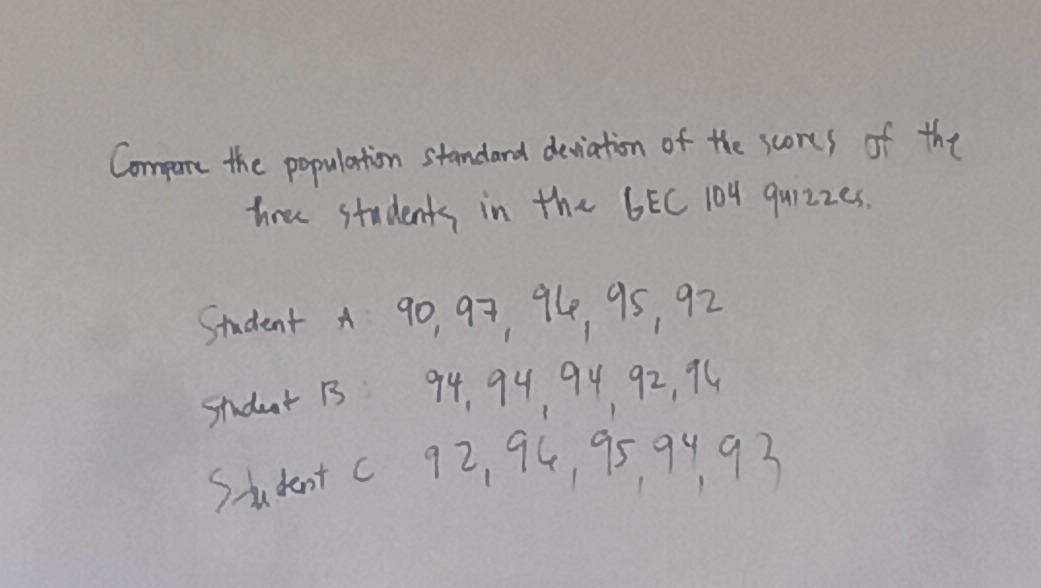 Compare the population standard deviation of the scores of the
three students in the GEC 104 quizzes.
Student A 90, 97, 96, 95, 92
Student B : 94, 94, 94, 92, 96
Student C 92, 96, 95, 94, 93